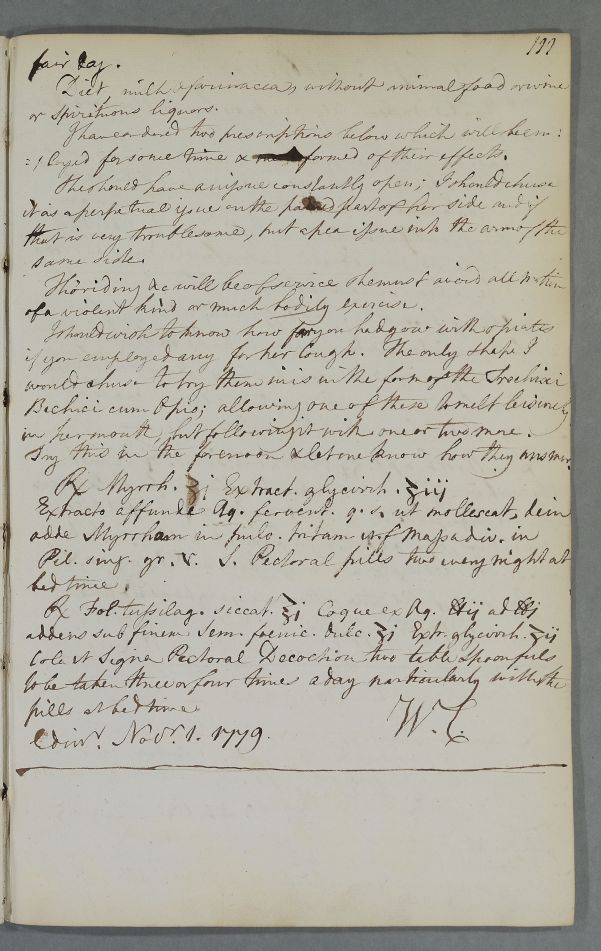 199
fair day.
Diet milk & farinacea, without animal food or wine
or spirituous liquors.
I have ordered two prescriptions below which will be em:
:ployed for some time & formed of their effects.
She should have an issue constantly open; I should chuse
it as a perpetual issue on the pained part of her side and if
that is very troublesome, put a pea issue into the arm of the
same side.
Tho riding &c will be of service she must avoid all motion
of a violent kind or much bodily exercise.
I should wish to know how far you had gone with opiates
if you employed any for her Cough. The only shape I
would chuse to try them in is in the form of the Trochisci
Bechici cum Opio; allowing one of these to melt leisurely
in her mouth, but following it with one or two more.
Try this in the forenoon & let me know how they answer.
℞ Myrrh. ʒj Extract. glycirrh. ʒiij
Extracto affunde Aq. fervent. q. s. ut mollescat, dein
adde Myrrham in pulv. tritam ut f massa div. in
Pil. sing. gr. v. S. Pectoral pills two every night at
bed time.
℞ Fol. tussilag. siccat. ℥j Coque ex Aq. ℔ij ad ℔j
addens sub finem Sem. foenic. dulc. ʒj Extr. glycirrh. ʒij
Cola et Signa Pectoral Decoction two table spoonfuls
to be taken three or four times a day particularly with the
pills at bed time
Edinr. Novr. 1. 1779. W. C.